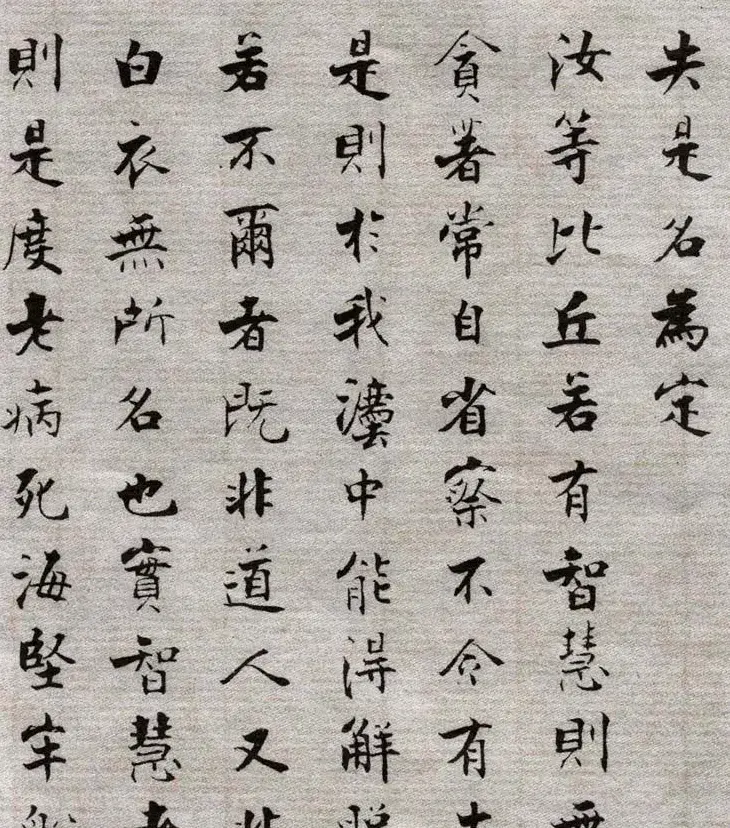 失是名為定
汝等比丘若有智慧則無
貪著常自省察不令有失
是則於我灋中能得解脫
若不爾者既非道人又非
白衣無所名也實智慧者
則是度老病死海堅牢